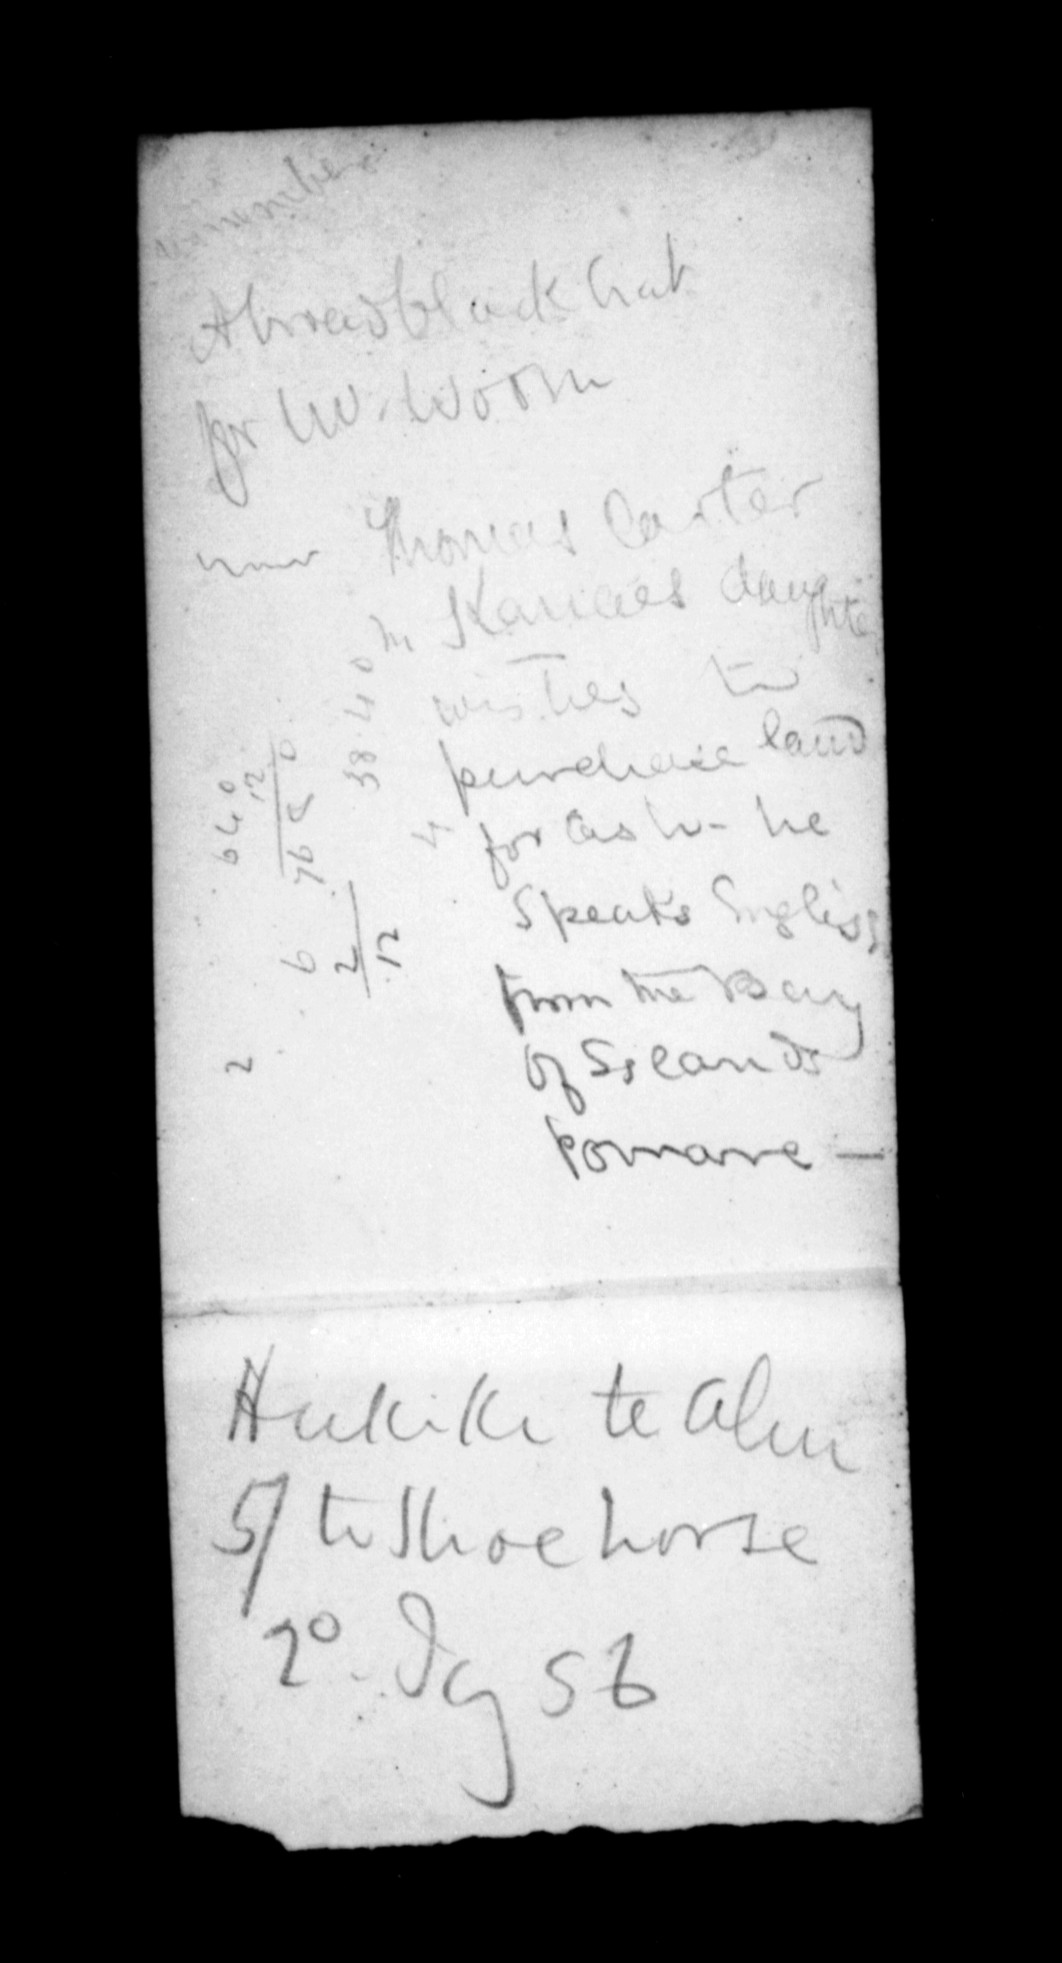 remember
A broad black hat
for W. Worm
Thomas Carter
m Karaies daughter
wishes to
purchase land
for cash - he
Speaks English
from the Bay
of Islands
Pomare —
640
12
7680
38.40
4
6
2
12
2
Hukiki te Ahu
5/ to Shoe horse
20. Jy 56